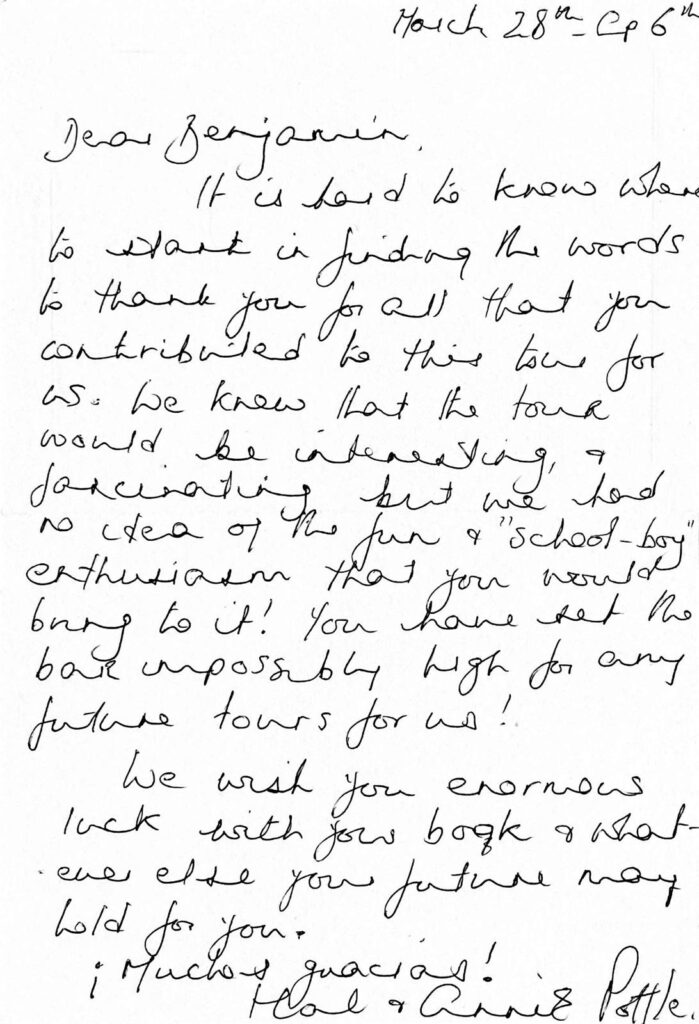 March 28th - Ap 6th
Dear Benjamin,
It is hard to know where
to start in finding the words
to thank you for all that you
contributed to this tour for
us. We knew that the tour
would be interesting, &
fascinating but we had
no idea of the fun & "school-boy"
enthusiasm that you would
bring to it! You have set the
bar impossibly high for any
future tours for us!
We wish you enormous
luck with your book & what-
ever else your future may
hold for you.
¡Muchas gracias!
& Annie Pottle.